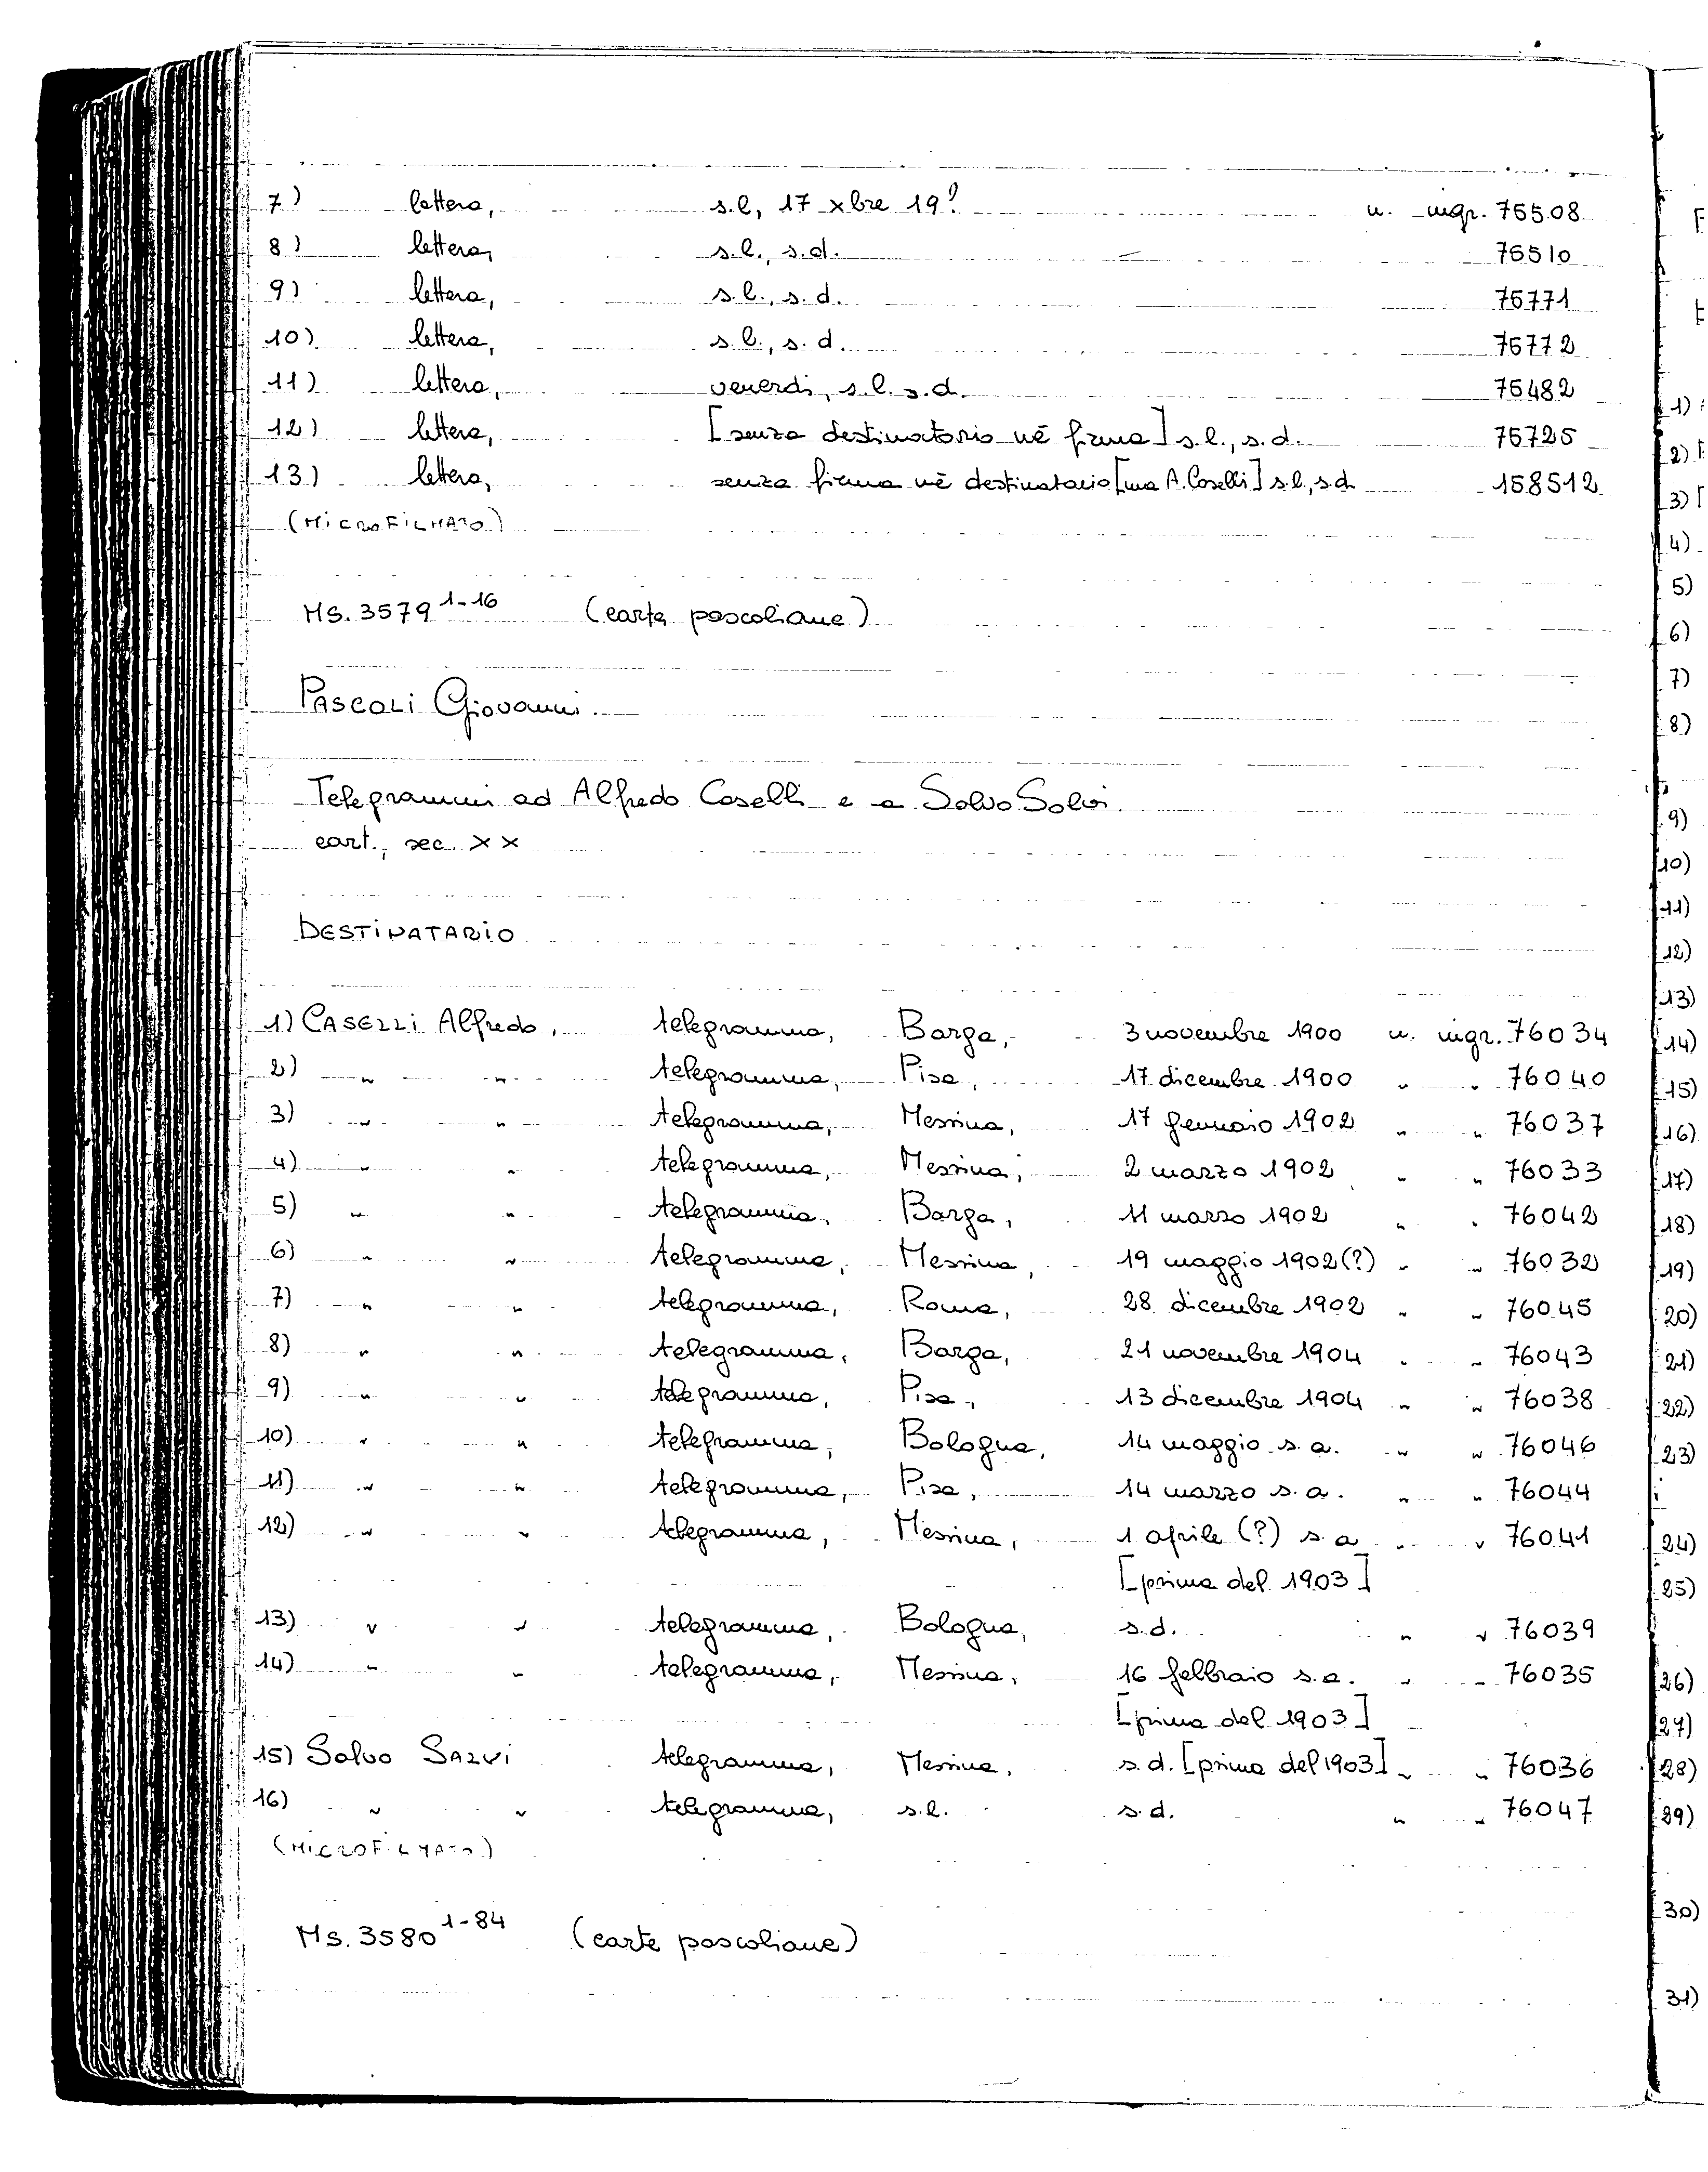 7) lettera, s.l, 17 xbre 19? n. ingr. 75508
8) lettera, s.l., s.d. 75510
9) lettera, s.l., s.d. 75771
10) lettera, s.l., s.d. 75772
11) lettera, venerdi, s.l. s.d. 75482
12) lettera, [senza destinatario nè firma] s.l., s.d. 75725
13) lettera, senza firma nè destinatario [ma A. Caselli] s.l., s.d. 158512
(MICROFILMATO)
MS. 3579 1-16 (carte pascoliane)
PASCOLI Giovanni.
Telegrammi ad Alfredo Caselli e a Salvo Salvi
cart., sec. XX
DESTINATARIO
1) CASELLI Alfredo, telegramma, Barga, 3 novembre 1900 n. ingr. 76034
2) " " telegramma, Pisa, 17 dicembre 1900 " " 76040
3) " " telegramma, Messina, 17 gennaio 1902 " " 76037
4) " " telegramma, Messina, 2 marzo 1902 " " 76033
5) " " telegramma, Barga, 11 marzo 1902 " " 76042
6) " " telegramma, Messina, 19 maggio 1902 (?) " " 76032
7) " " telegramma, Roma, 28 dicembre 1902 " " 76045
8) " " telegramma, Barga, 21 novembre 1904 " " 76043
9) " " telegramma, Pisa, 13 dicembre 1904 " " 76038
10) " " telegramma, Bologna, 14 maggio s.a. " " 76046
11) " " telegramma, Pisa, 14 marzo s.a. " " 76044
12) " " telegramma, Messina, 1 aprile (?) s.a " " 76041
[prima del 1903]
13) " " telegramma, Bologna, s.d. " " 76039
14) " " telegramma, Messina, 16 febbraio s.a. " " 76035
[prima del 1903]
15) Salvo SALVI telegramma, Messina, s.d. [prima del 1903] " " 76036
16) " " telegramma, s.l. s.d. " " 76047
(MICROFILMATO)
Ms. 3580 1-84 (carte pascoliane)
1)
2)
3)
4)
5)
6)
7)
8)
9)
10)
11)
12)
13)
14)
15)
16)
17)
18)
19)
20)
21)
22)
23)
24)
25)
26)
27)
28)
29)
30)
31)